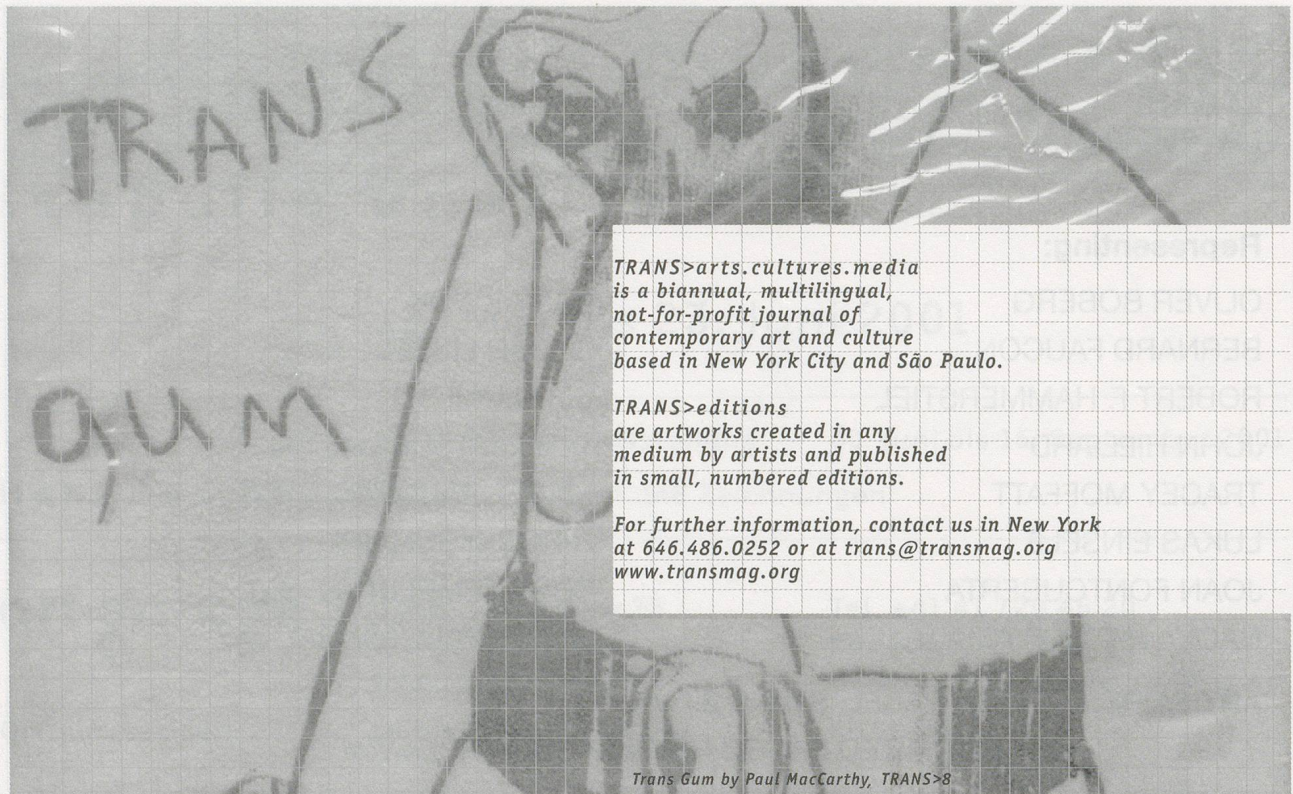 TRANS
GUM
TRANS>arts.cultures.media
is a biannual, multilingual,
not-for-profit journal of
contemporary art and culture
based in New York City and São Paulo.
TRANS>editions
are artworks created in any
medium by artists and published
in small, numbered editions.
For further information, contact us in New York
at 646.486.0252 or at trans@transmag.org
www.transmag.org
Trans Gum by Paul MacCarthy, TRANS>8
Representing:
OLIVER BOBERG
TRACEY MOFFATT
JOAN FONTCUBERTA